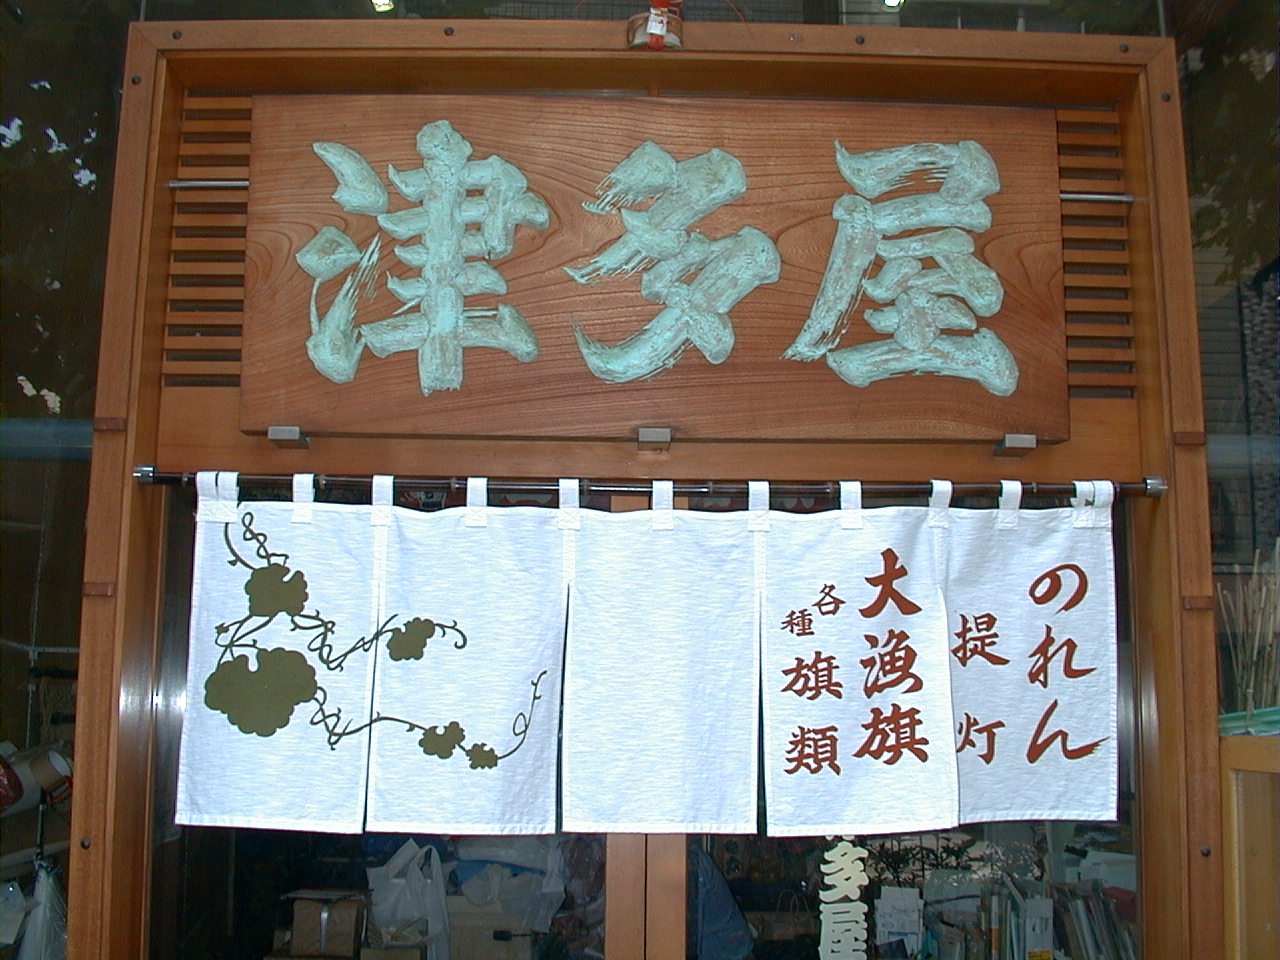 津多屋
のれん
提灯
大漁旗
各種旗類
多屋